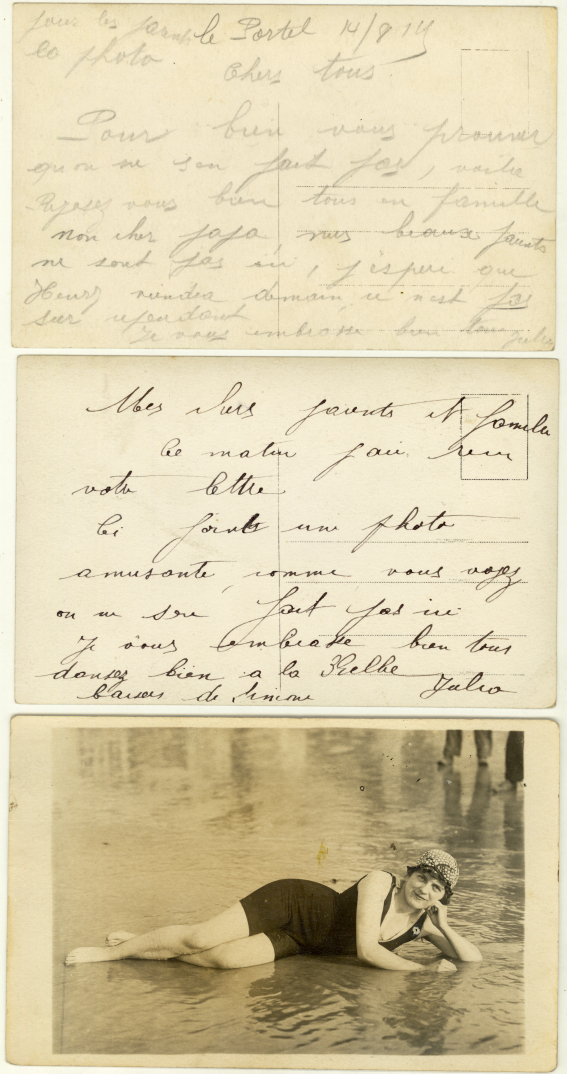 pour les parents le Portel 14/8 19
la photo
Chers tous
Pour bien vous prouver
qu on ne s en fait pas, voilà
vous bien tous en famille
mon cher papa, mes beaux parents
ne sont pas ici, j espère que
Henry viendra demain, ce n est pas
sur cependant
Je vous embrasse bien tous Julia
Mes chers parents et famille
Ce matin j ai recu
votre lettre
Ci joint une photo
amusante, comme vous voyez
on ne sen fait pas ici
Je vous embrasse bien tous
dansez bien a la
Julia
baisers de Simone